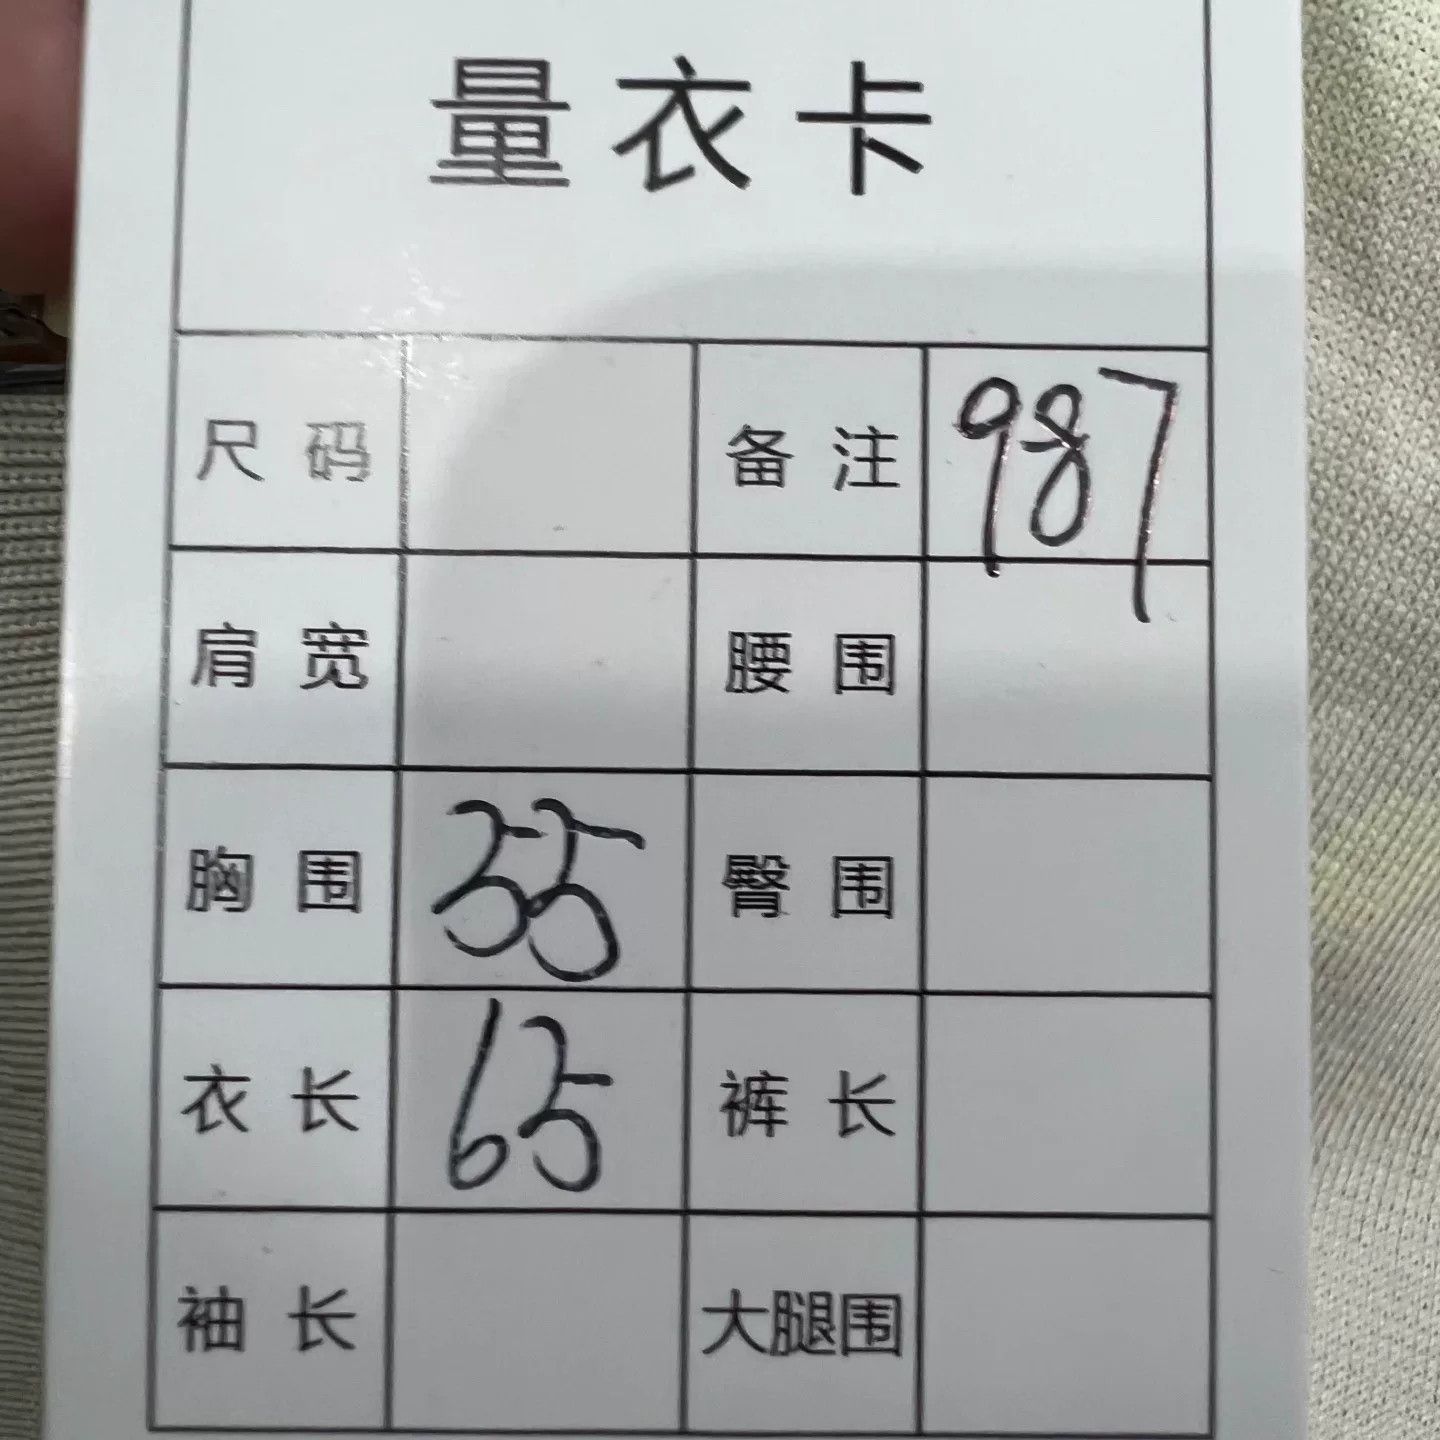 量衣卡
尺码 备注 987
肩宽 腰围
胸围 55 臀围
衣长 65 裤长
袖长 大腿围